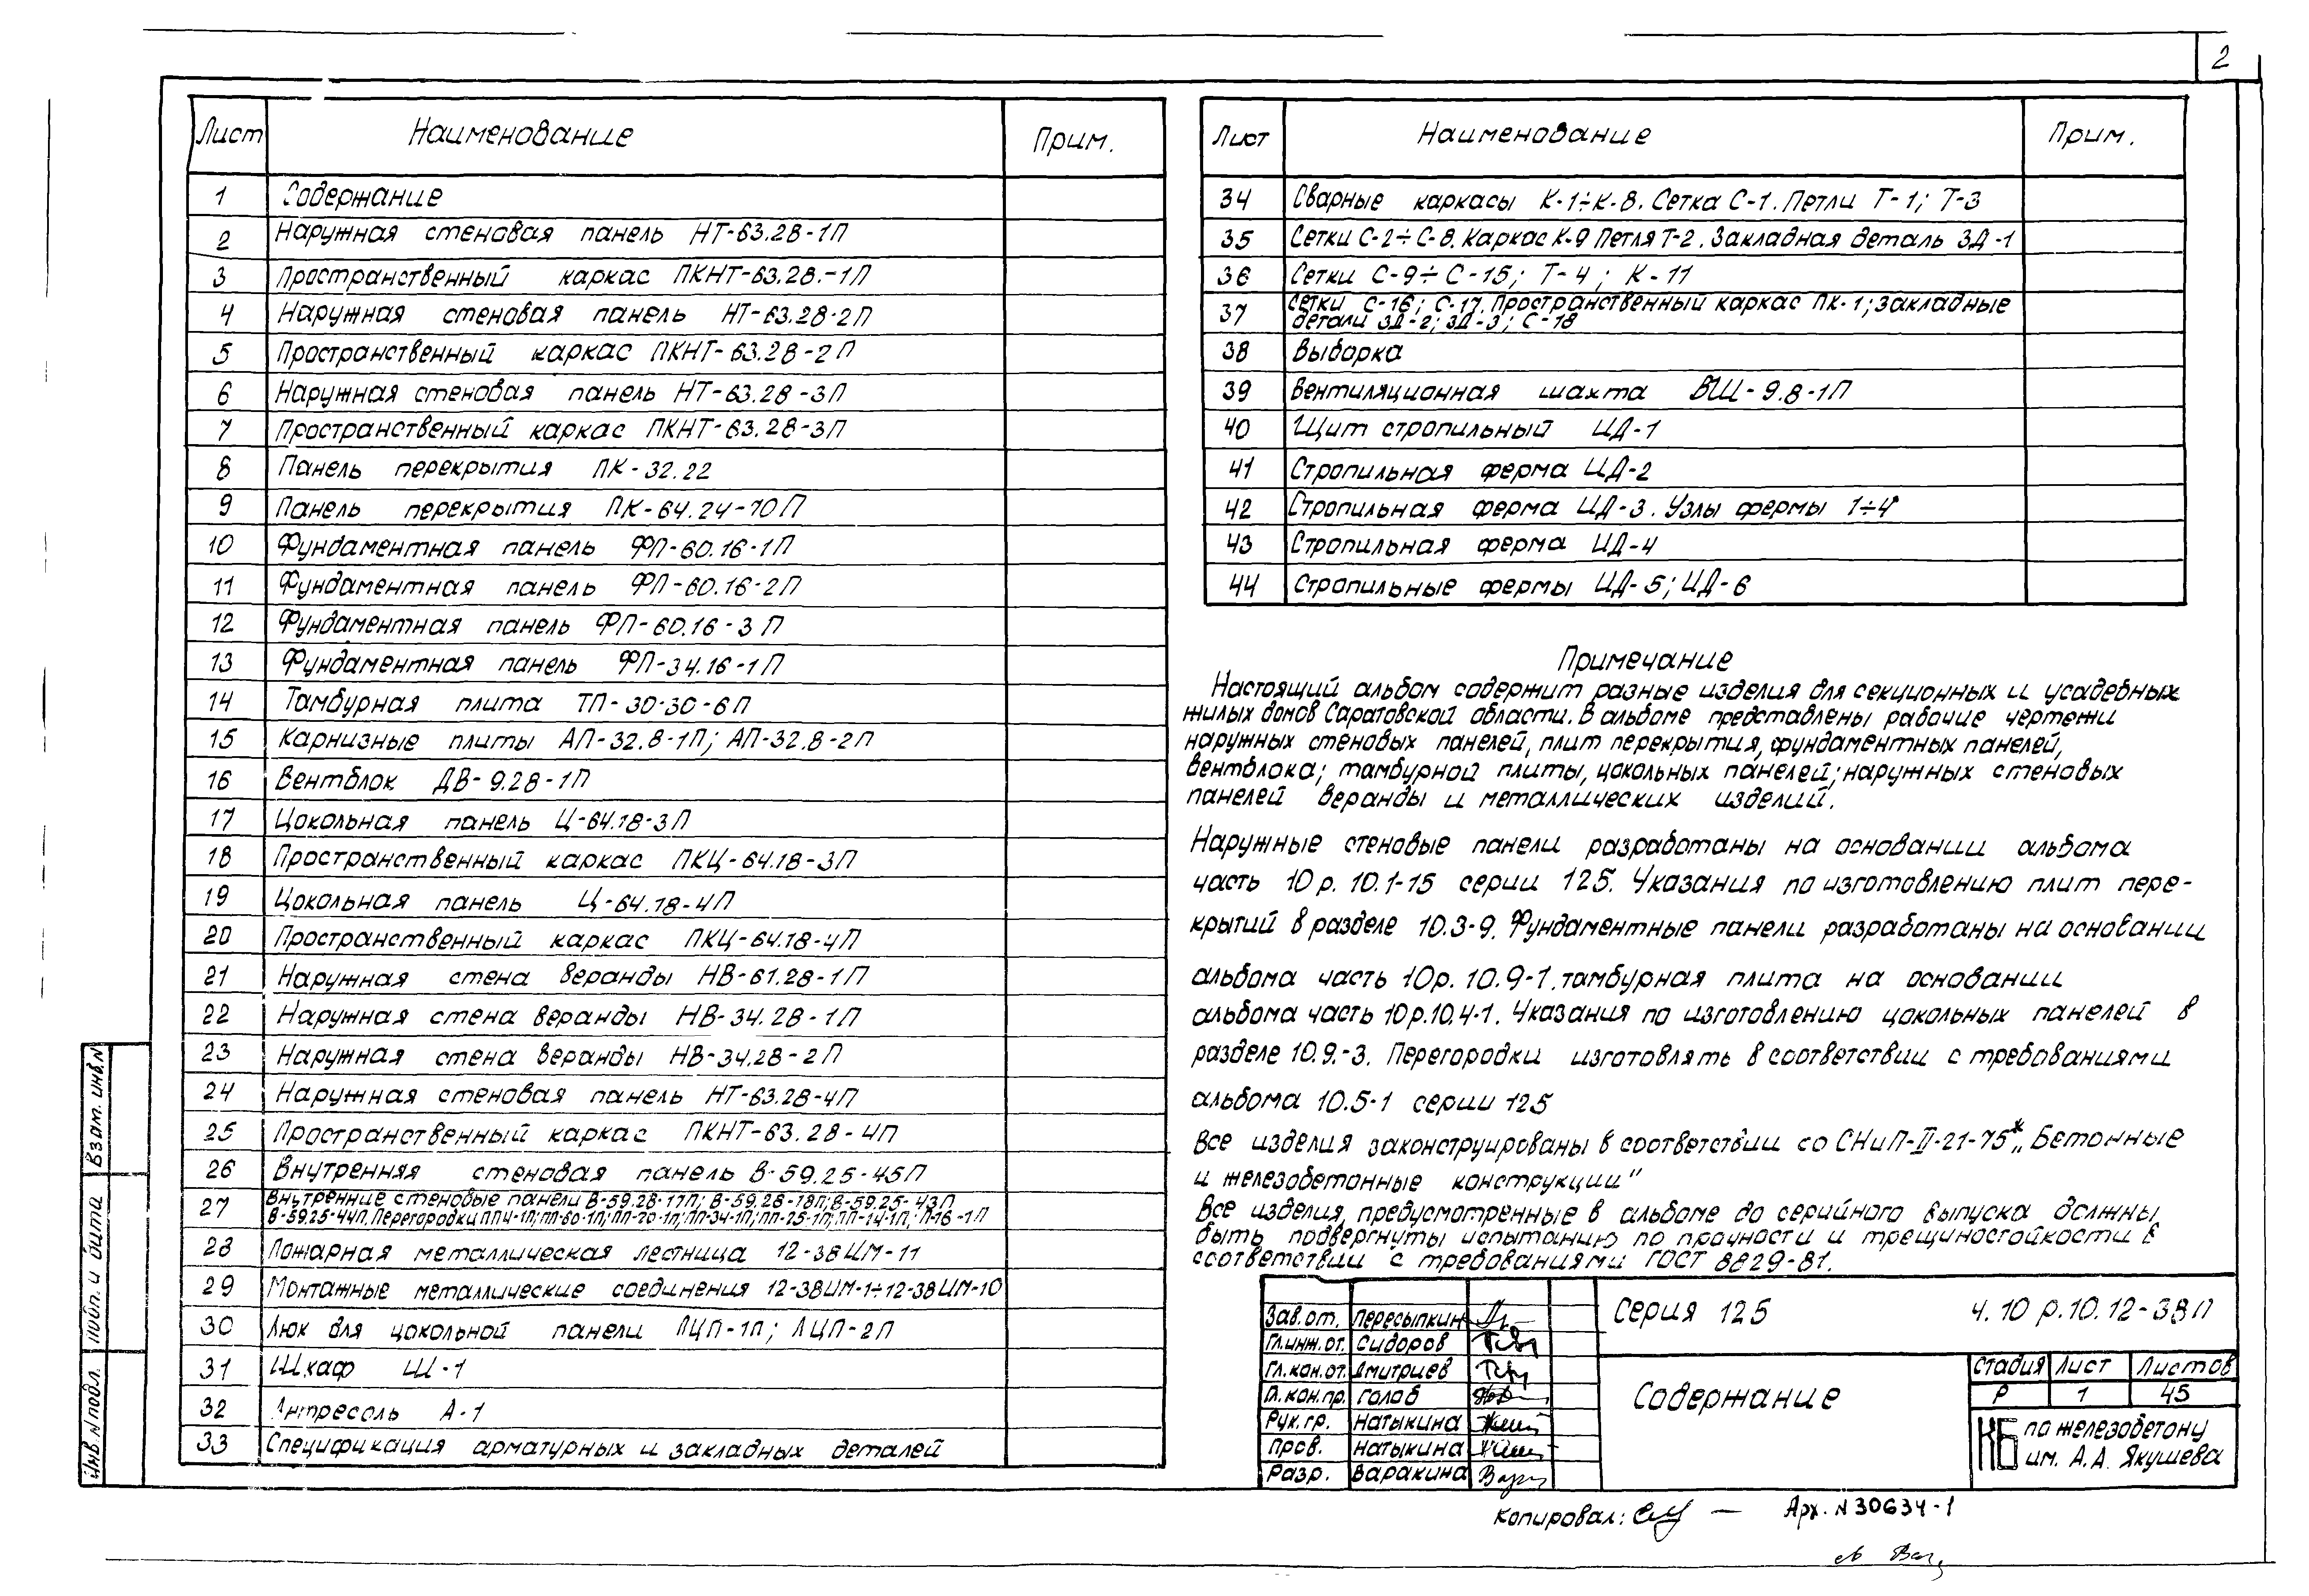 2
Лист Наименование Прим.
1 Содержание
2 Наружная стеновая панель НТ-63.28-1П
3 Пространственный каркас ПКНТ-63.28.-1П
4 Наружная стеновая панель НТ-63.28-2П
5 Пространственный каркас ПКНТ-63.28-2П
6 Наружная стеновая панель НТ-63.28-3П
7 Пространственный каркас ПКНТ-63.28-3П
8 Панель перекрытия ПК-32.22
9 Панель перекрытия ПК-64.24-10П
10 Фундаментная панель ФП-60.16-1П
11 Фундаментная панель ФП-60.16-2П
12 Фундаментная панель ФП-60.16-3П
13 Фундаментная панель ФП-34.16-1П
14 Тамбурная плита ТП-30-30-6П
15 Карнизные плиты АП-32.8-1П; АП-32.8-2П
16 Вентблок ДВ-9.28-1П
17 Цокольная панель Ц-64.18-3П
18 Пространственный каркас ПКЦ-64.18-3П
19 Цокольная панель Ц-64.18-4П
20 Пространственный каркас ПКЦ-64.18-4П
21 Наружная стена веранды НВ-61.28-1П
22 Наружная стена веранды НВ-34.28-1П
23 Наружная стена веранды НВ-34.28-2П
24 Наружная стеновая панель НТ-63.28-4П
25 Пространственный каркас ПКНТ-63.28-4П
26 Внутренняя стеновая панель В-59.25-45П
27 Внутренние стеновые панели В-59.28-17П; В-59.28-18П; В-59.25-43П
В-59.25-44П. Перегородки ПП4-1П; ПП-60-1П; ПП-20-1П; ПП-34-1П; ПП-25-1П; ПП-14-1П; П-16-1П
28 Пожарная металлическая лестница 12-38ИМ-11
29 Монтажные металлические соединения 12-38ИМ-1÷12-38ИМ-10
30 Люк для цокольной панели ЛЦП-1П; ЛЦП-2П
31 Шкаф Ш-1
32 Антресоль А-1
33 Спецификация арматурных и закладных деталей
Лист Наименование Прим.
34 Сварные каркасы К-1÷К-8. Сетка С-1. Петли Т-1; Т-3
35 Сетки С-2÷С-8. Каркас К-9 Петля Т-2. Закладная деталь ЗД-1
36 Сетки С-9÷С-15; Т-4; К-11
37 Сетки С-16; С-17. Пространственный каркас ПК-1; Закладные
детали ЗД-2; ЗД-3; С-18
38 Выборка
39 Вентиляционная шахта ВШ-9.8-1П
40 Щит стропильный ИД-1
41 Стропильная ферма ИД-2
42 Стропильная ферма ИД-3. Узлы фермы 1÷4
43 Стропильная ферма ИД-4
44 Стропильные фермы ИД-5; ИД-6
Примечание
Настоящий альбом содержит разные изделия для секционных и усадебных
жилых домов Саратовской области. В альбоме представлены рабочие чертежи
наружных стеновых панелей, плит перекрытия, фундаментных панелей,
вентблока; тамбурной плиты, цокольных панелей; наружных стеновых
панелей веранды и металлических изделий.
Наружные стеновые панели разработаны на основании альбома
часть 10 р. 10.1-15 серии 125. Указания по изготовлению плит пере-
крытий в разделе 10.3-9. Фундаментные панели разработаны на основании
альбома часть 10р. 10.9-1. тамбурная плита на основании
альбома часть 10р.10.4-1. Указания по изготовлению цокольных панелей в
разделе 10.9.-3. Перегородки изготовлять в соответствии с требованиями
альбома 10.5-1 серии 125
Все изделия законструированы в соответствии со СНиП-II-21-75* „Бетонные
и железобетонные конструкции"
Все изделия, предусмотренные в альбоме до серийного выпуска должны
быть подвергнуты испытанию по прочности и трещиностойкости в
соответствии с требованиями ГОСТ 8829-81.
Взам. инв.N
Подп. и дата
Инв.N подл.
Зав.от. Пересыпкин
Гл.инж.от. Сидоров
Гл.кон.от. Дмитриев
Гл.кон.пр. Голоб
Рук.гр. Натыкина
Пров. Натыкина
Разр. Варакина
Серия 125 ч.10 р.10.12-38П
Содержание
Стадия Лист Листов
Р 1 45
КБ по железобетону
им. А.А. Якушева
Копировал: Арх. N 30634-1